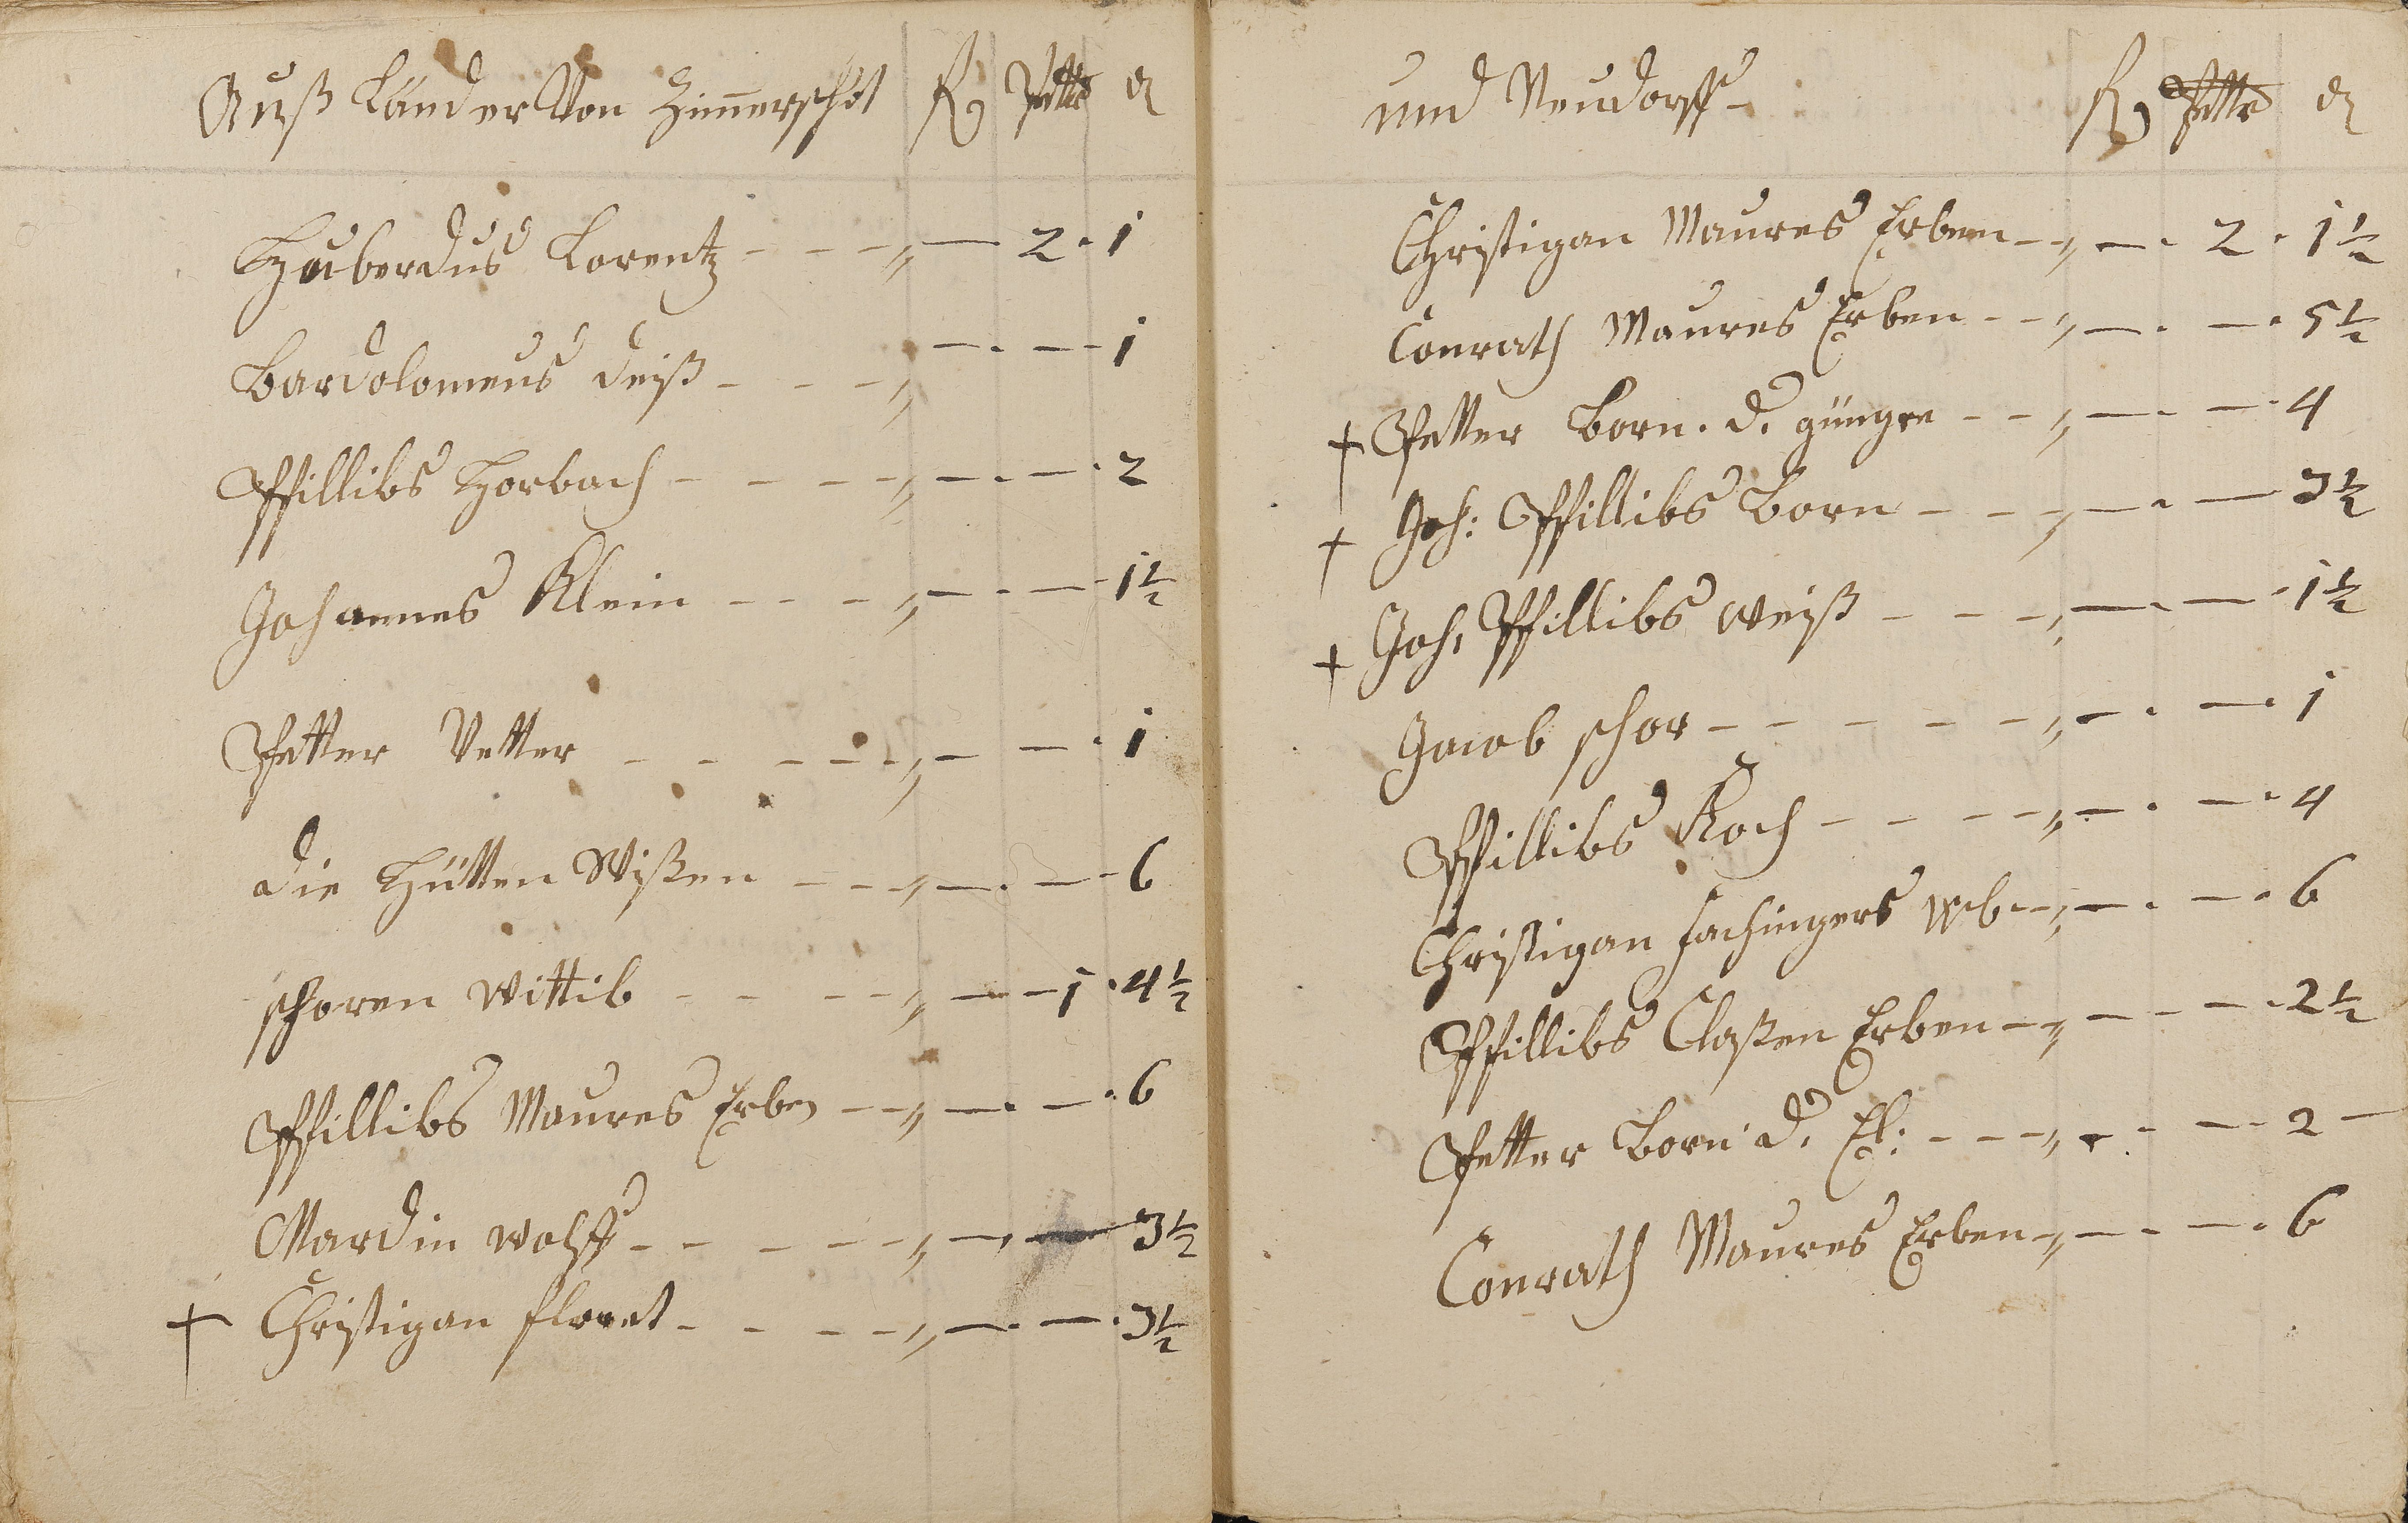 Auß Länder Von Zimmerschit R petter d
Hueberdus Lorentz - - - - - 2 . 1
Bardolomeus deiß - - - - . - 1
Pfillibs Horbach - - - - - . - . 2
Johannes Klein - - - - . - 1½
Petter Vetter - - - - - - . 1
die Hütten Wißen - - - - . - 6
schoren wittib - - - - - 1 . 4½
Pfillibs Maures Erben - - - . - . 6
Mardin wolff - - - - - - 3½
† Christigan floret - - - - - . - . 3½
und Neudorff - R petter d
Christigan Maures Erben - - . 2 . 1½
Conrath Maures Erben - - - . - . 5½
† Petter Born . d. güngre - - - . - . 4
† Joh: Pfillibs Born - - - . - 3½
† Joh: Pfillibs weiß - - - - . - . 1½
Jacob schor - - - - - - . - . 1
Pfillibs Koch - - - - - . - . 4
Christigan fachingers wb - - . - . 6
Pfillibs Claßen Erben - - - - . 2½
Petter Born d. El: - - - . - - . 2 -
Conrath Maures Erben - - - . 6